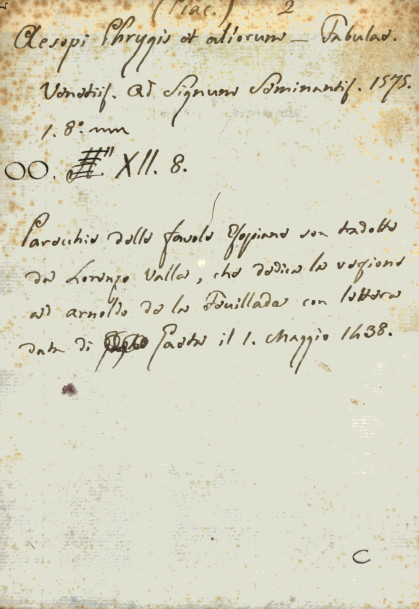 (Piac.) 2
Aesopi Phrygis et aliorum — Fabulae.
Venetiis. Ad Signum Seminantis. 1575.
1. 8.°
OO. XII. 8.
Parecchie delle favole Esopiane son tradotte
da Lorenzo Valla, che dedica la versione
ad Arnoldo de la Feuillada con lettera
data di Gaeta il 1. Maggio 1438.
C